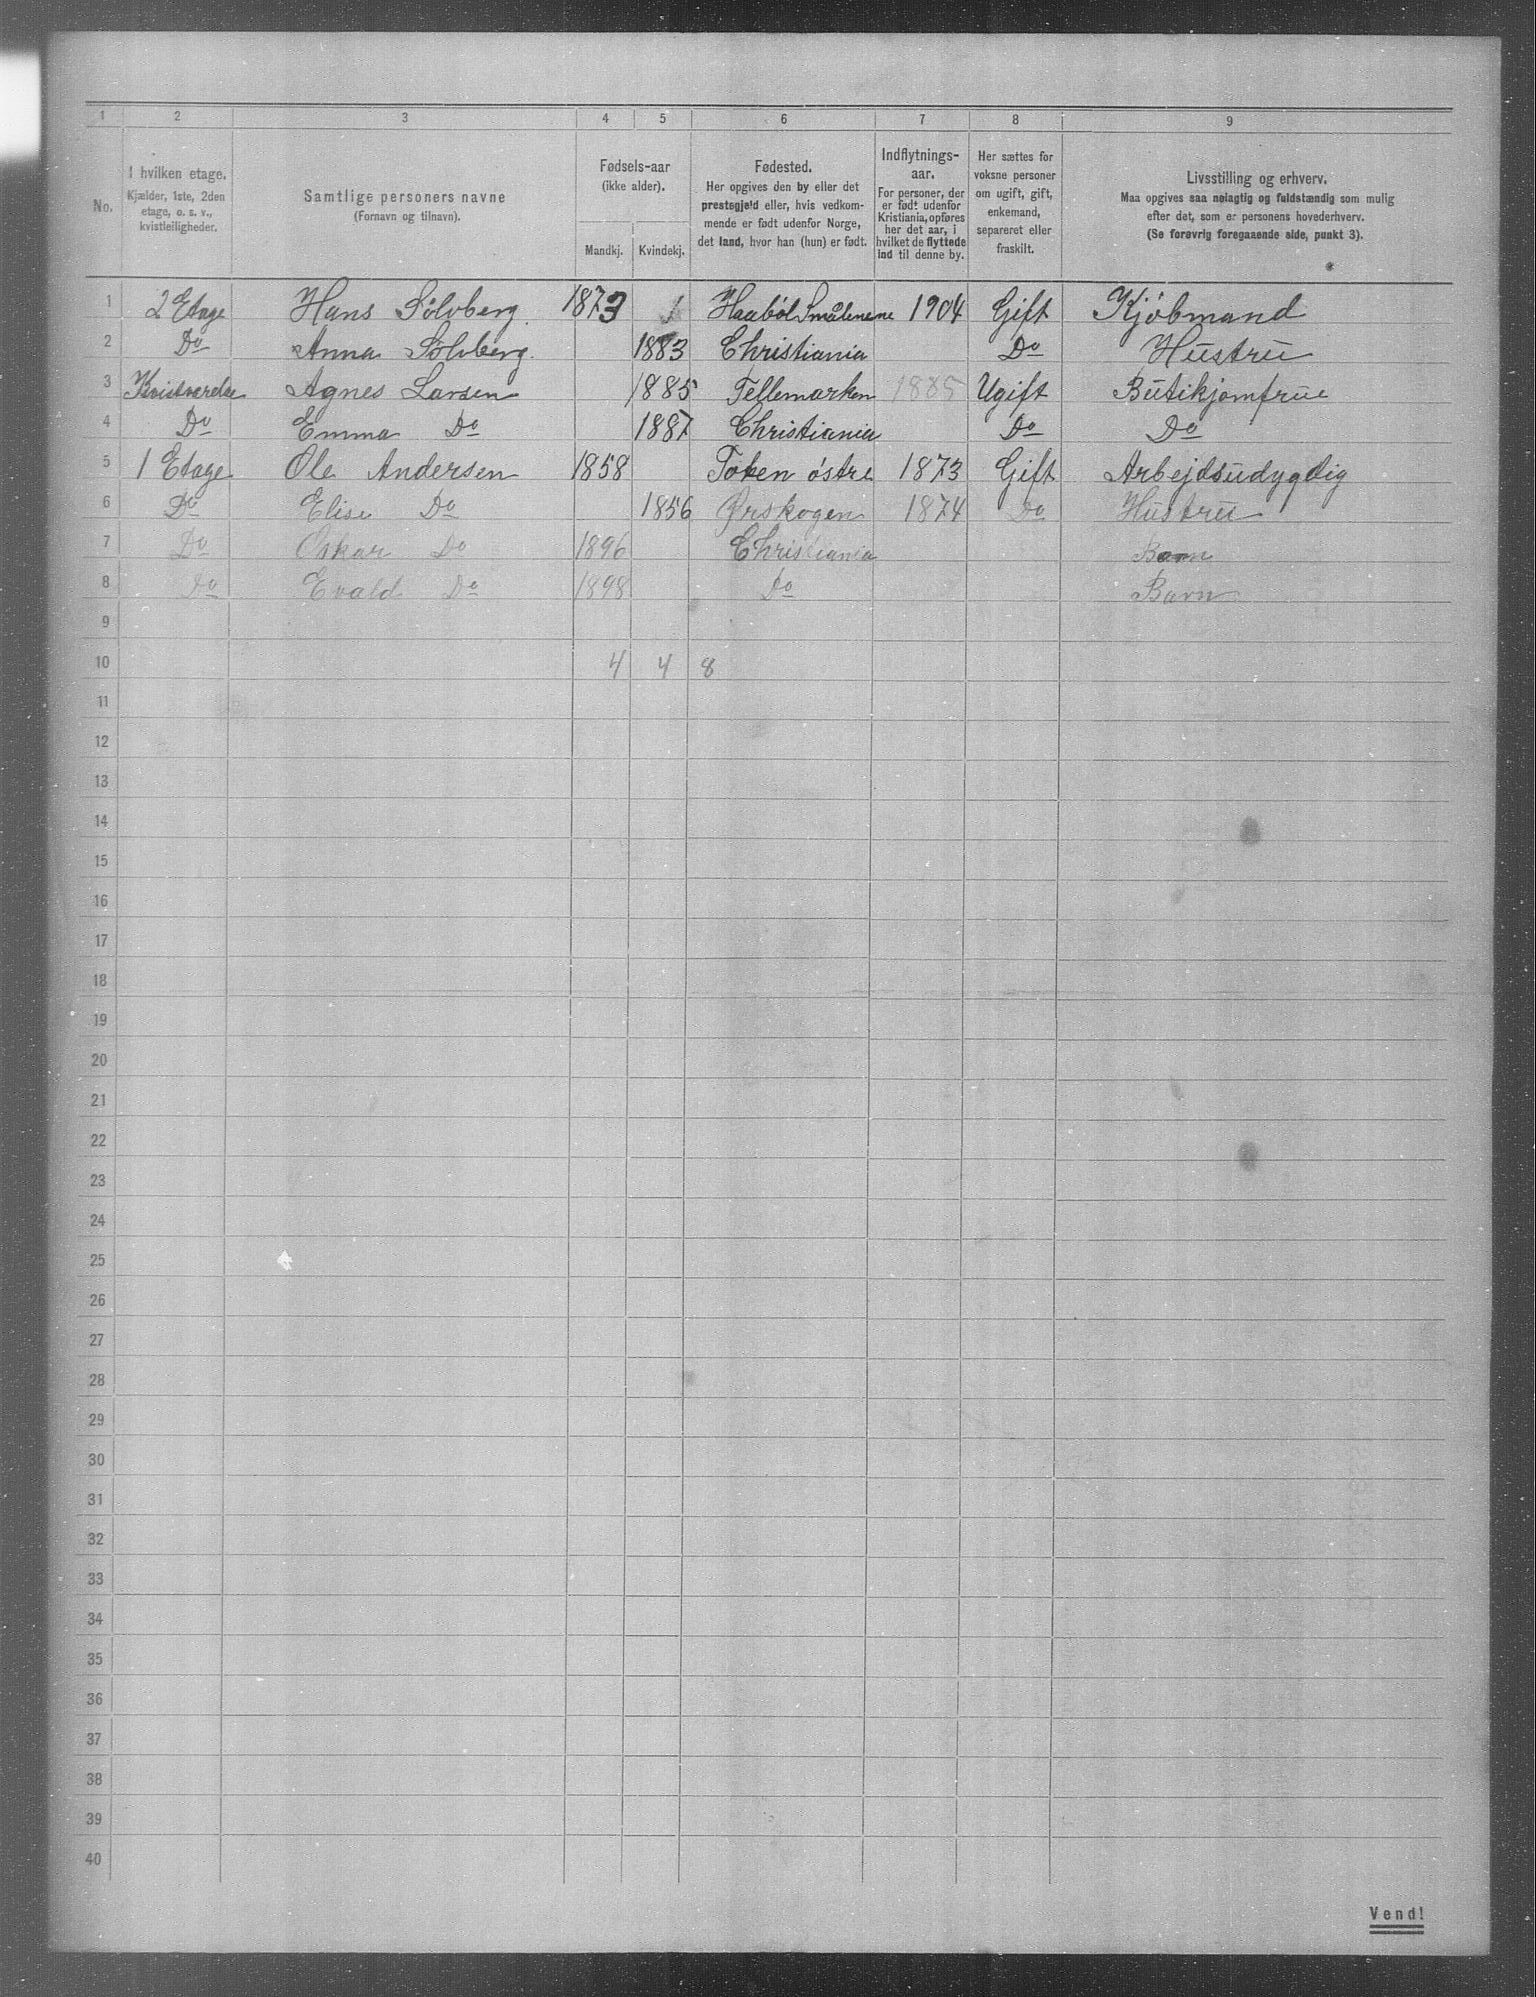 1 2 3 4 5 6 7 8 9
No.
I hvilken etage.
Kjælder, 1ste, 2den
etage, o. s. v.,
kvistleiligheder.
Samtlige personers navne
(Fornavn og tilnavn).
Fødsels-aar
(ikke alder).
Mandkj. Kvindekj.
Fødested.
Her opgives den by eller det
prestegjeld eller, hvis vedkom-
mende er født udenfor Norge,
det land, hvor han (hun) er født.
Indflytnings-
aar.
For personer, der
er født udenfor
Kristiania, opføres
her det aar, i
hvilket de flyttede
ind til denne by.
Her sættes for
voksne personer
om ugift, gift,
enkemand,
separeret eller
fraskilt.
Livsstilling og erhverv.
Maa opgives saa nøiagtig og fuldstændig som mulig
efter det, som er personens hovederhverv.
(Se forøvrig foregaaende side, punkt 3).
1 2 Etage Hans Sølvberg. 1873 Haabøl Smålenene 1904 Gift Kjøbmand
2 Do Anna Sølvberg. 1883 Christiania Do Hustru
3 Agnes Larsen 1885 Tellemarken 1885 Ugift Butikjomfrue
4 Do Emma Do 1887 Christiania Do Do
5 1 Etage Ole Andersen 1858 Toten østre 1873 Gift Arbejdsudygdig
6 Do Elise Do 1856 Ørskogen 1874 Do Hustru
7 Do Oskar Do 1896 Christiania Barn
8 Do Evald Do 1898 Do Barn
9
10 4 4 8
11
12
13
14
15
16
17
18
19
20
21
22
23
24
25
26
27
28
29
30
31
32
33
34
35
36
37
38
39
40
Vend!